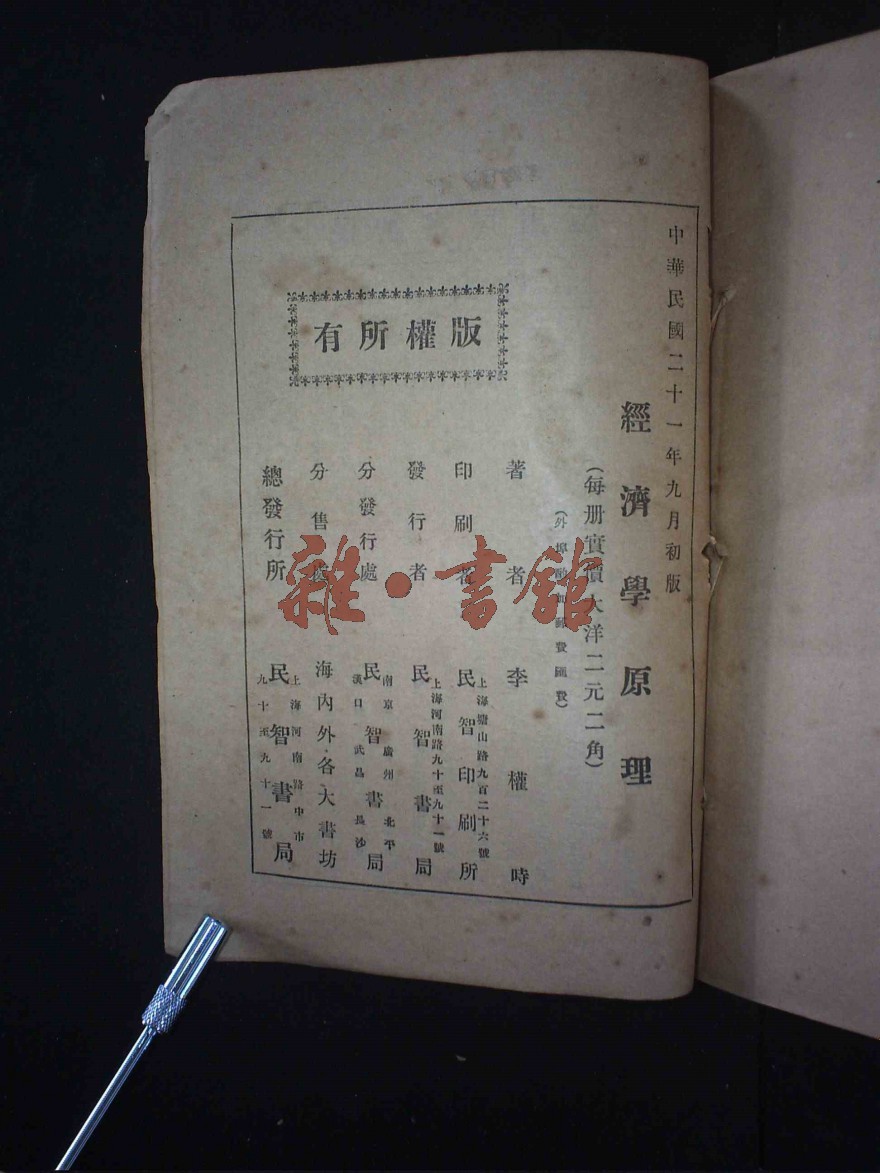 中華民國二十一年九月初版
經濟學原理
(每册實價大洋二元二角)
(外埠酌加郵費匯費)
著者 李權時
印刷者 民智印刷所
上海塘山路九百二十六號
發行者 民智書局
上海河南路九十至九十一號
分發行處 民智書局
南京 廣州 北平
漢口 武昌 長沙
分售處 海內外各大書坊
總發行所 民智書局
上海河南路中市
九十至九十一號
版權所有
雜·書館